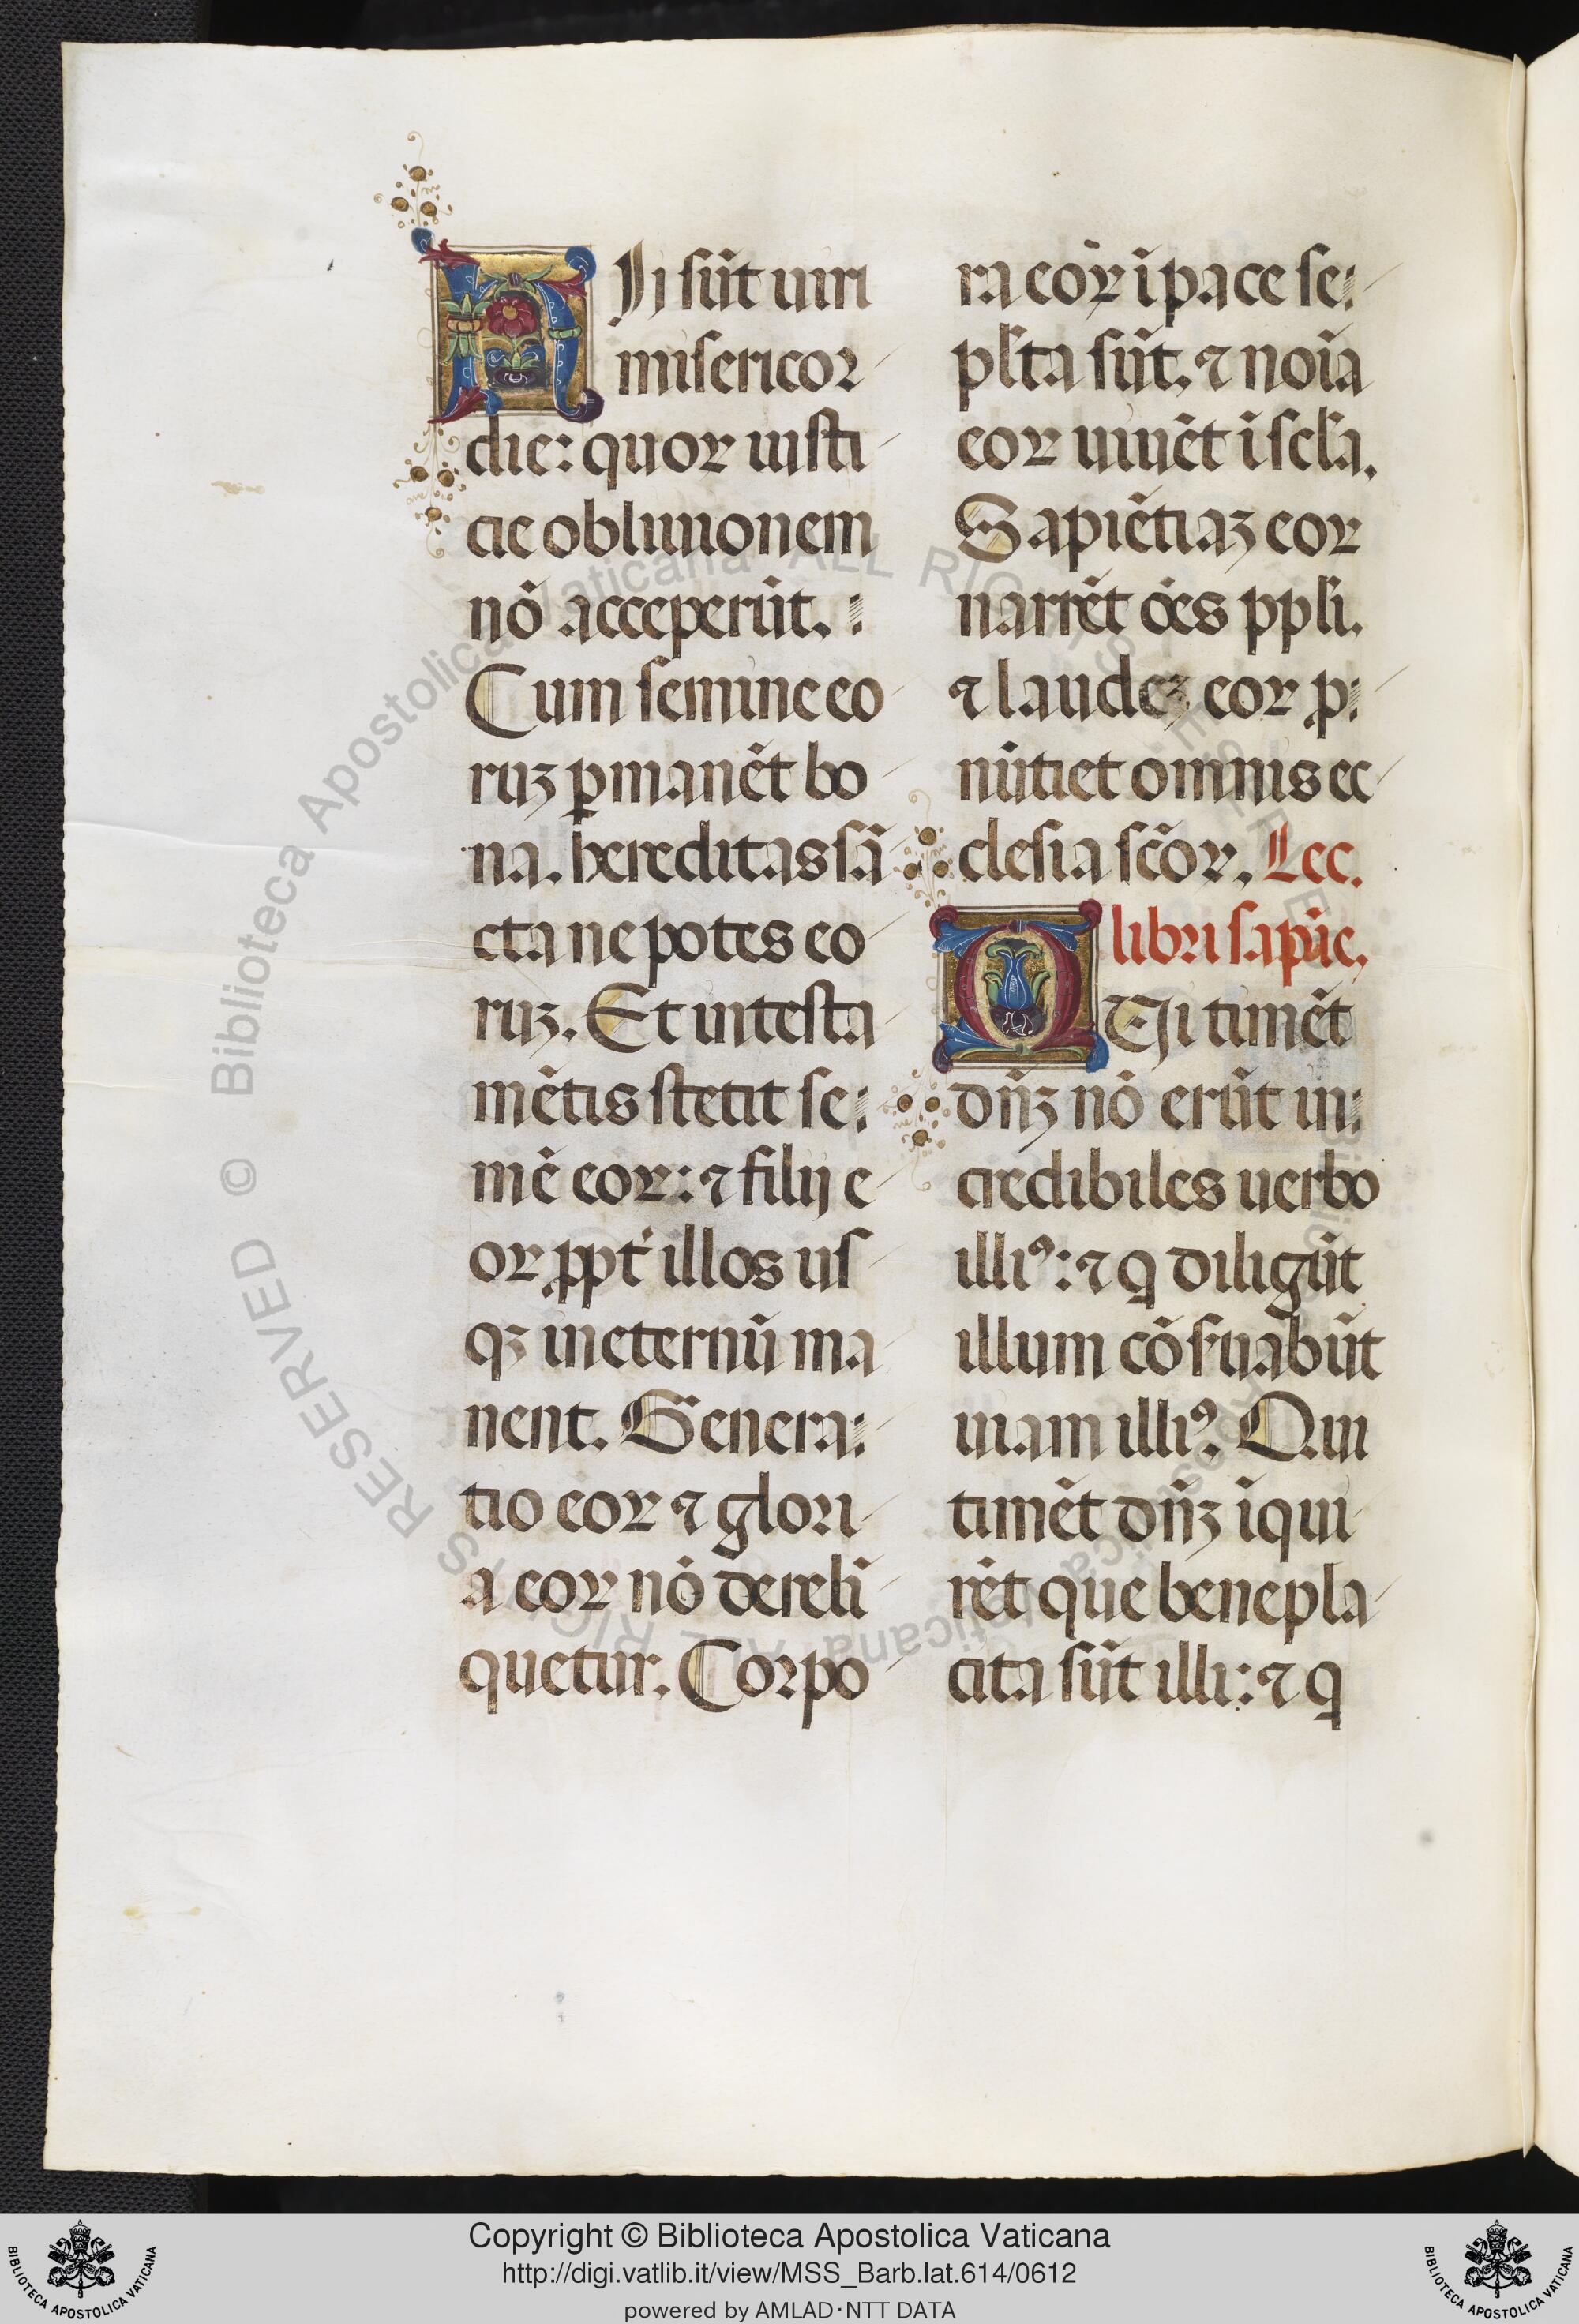 HIi sūt uiri
misericor
die: quoꝝ iusti
cie obliuionem
nō acceperūt.
Cum semine eo
ruꝫ ꝑmanēt bo
na. hereditas sā
cta nepotes eo
ruꝫ. Et in testa
mētis stetit se
mē eoꝝ: ⁊ filij e
oꝝ ꝓpt̄ illos us
qꝫ in eternū ma
nent. Genera
tio eoꝝ ⁊ glori
a eoꝝ nō dereli
quetur. Corpo
ra eoꝝ ī pace se
pl̄ta sūt. ⁊ noīa
eoꝝ uiuēt ī scl̄a.
Sapiētiaꝫ eoꝝ
narrēt ōēs ppl̄i.
⁊ laudeꝫ eoꝝ ꝓ
nūtiet omnis ec
clesia scōꝝ. Lec.
libri sapīe.
QUi timēt
dn̄ꝫ nō erūt in
credibiles uerbo
illiꝰ: ⁊ q̄ diligūt
illum cōẜuabūt
uiam illiꝰ. Qui
timēt dn̄ꝫ īqui
rēt que benepla
cita sūt illi: ⁊ q̄
© Biblioteca Apostolica Vaticana ALL RIGHTS RESERVED
Copyright © Biblioteca Apostolica Vaticana
http://digi.vatlib.it/view/MSS_Barb.lat.614/0612
powered by AMLAD·NTT DATA
BIBLIOTECA APOSTOLICA VATICANA
BIBLIOTECA APOSTOLICA VATICANA